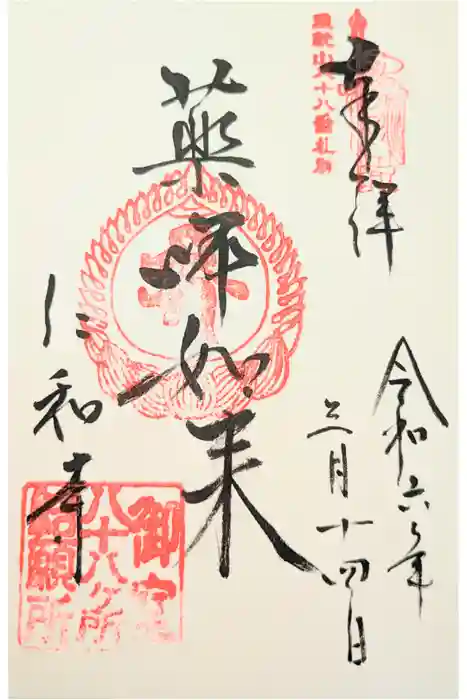 奉拝
八十八箇札所
令和六年
三月十四日
薬師如来
仁和寺
御室
八十八ヶ所
結願所